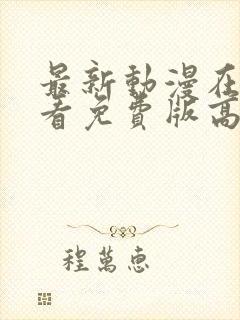 最新動漫在
看免費版高
程萬惠